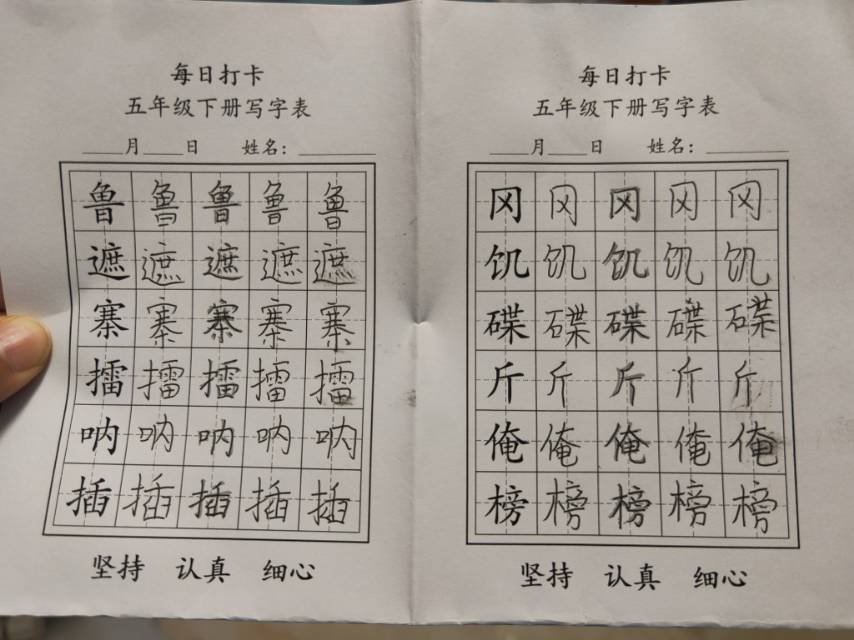 每日打卡
五年级下册写字表
____月____日 姓名：________
鲁 鲁 鲁 鲁 鲁
遮 遮 遮 遮 遮
寨 寨 寨 寨 寨
擂 擂 擂 擂 擂
呐 呐 呐 呐 呐
插 插 插 插 插
坚持 认真 细心
每日打卡
五年级下册写字表
____月____日 姓名：________
冈 冈 冈 冈 冈
饥 饥 饥 饥 饥
碟 碟 碟 碟 碟
斤 斤 斤 斤 斤
俺 俺 俺 俺 俺
榜 榜 榜 榜 榜
坚持 认真 细心